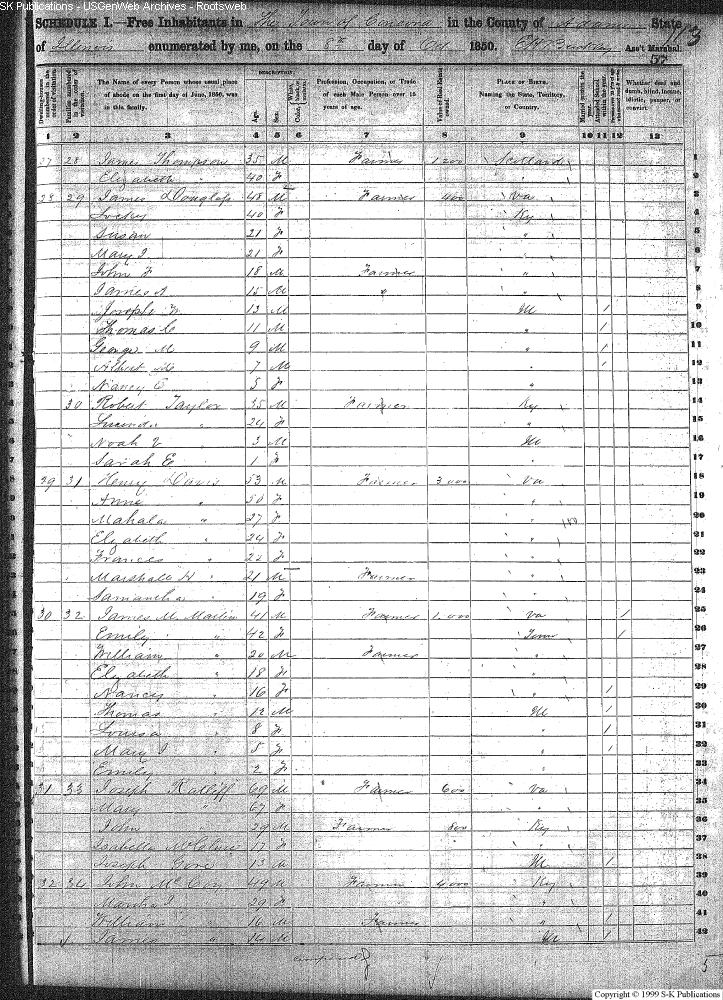 SK Publications - USGenWeb Archives - Rootsweb
SCHEDULE I.—Free Inhabitants in The Town of Concord in the County of Adams State 113
of Illinois enumerated by me, on the 8th day of Oct 1850. Ass't Marshal.
57
Dwelling-houses numbered in the order of visitation.
Families numbered in the order of visitation.
The Name of every Person whose usual place of abode on the first day of June, 1850, was in this family.
DESCRIPTION.
Age.
Sex.
Color
Profession, Occupation, or Trade of each Male Person over 15 years of age.
Value of Real Estate owned.
PLACE OF BIRTH.
Naming the State, Territory, or Country.
Married within the year.
Attended School within the year.
Whether deaf and dumb, blind, insane, idiotic, pauper, or convict.
1 2 3 4 5 6 7 8 9 10 11 12 13
27 28 James Thompson 35 M Farmer 1200 Scotland 1
Elizabeth " 40 F " 2
28 29 James Douglass 48 M Farmer 400 Va 3
40 F Ky 4
Susan 21 F " 5
Mary J 21 F " 6
John F 18 M Farmer " 7
James A 15 M " " 8
Joseph W 13 M Ill / 9
Thomas C 11 M " / 10
George M 9 M " / 11
Albert 7 M " / 12
Nancy E 5 F " 13
30 Robert Taylor 35 M Farmer Ky 14
Lucinda " 24 F " 15
Noah 3 M Ill 16
Sarah E 1 F 17
29 31 Henry Davis 53 M Farmer 3000 Va 18
Anne " 50 F " 19
Mahala " 27 F " 20
Elizabeth " 24 F " 21
Frances " 22 F " 22
Marshall H " 21 M Farmer " 23
Samantha " 19 F " 24
30 32 James M. Martin 41 M Farmer 1,000 Va / 25
Emily " 42 F Tenn / 26
William " 20 M Farmer " 27
Elizabeth " 18 F " 28
Nancy " 16 F " / 29
Thomas " 12 M Ill / 30
Louisa " 8 F " / 31
Mary J " 5 F " / 32
Emily " 2 F " 33
31 33 Joseph Ratliff 69 M Farmer 600 Va 34
Mary " 67 F " 35
John " 29 M Farmer 800 Ky 36
Isabella 17 F " 37
Joseph Gore 13 M Ill / 38
32 34 John McCoy 49 M Farmer 4000 Ky 39
Martha J 29 F " 40
William " 16 M Farmer " / 41
James " 14 M Ill / 42
5
Copyright © 1999 S-K Publications